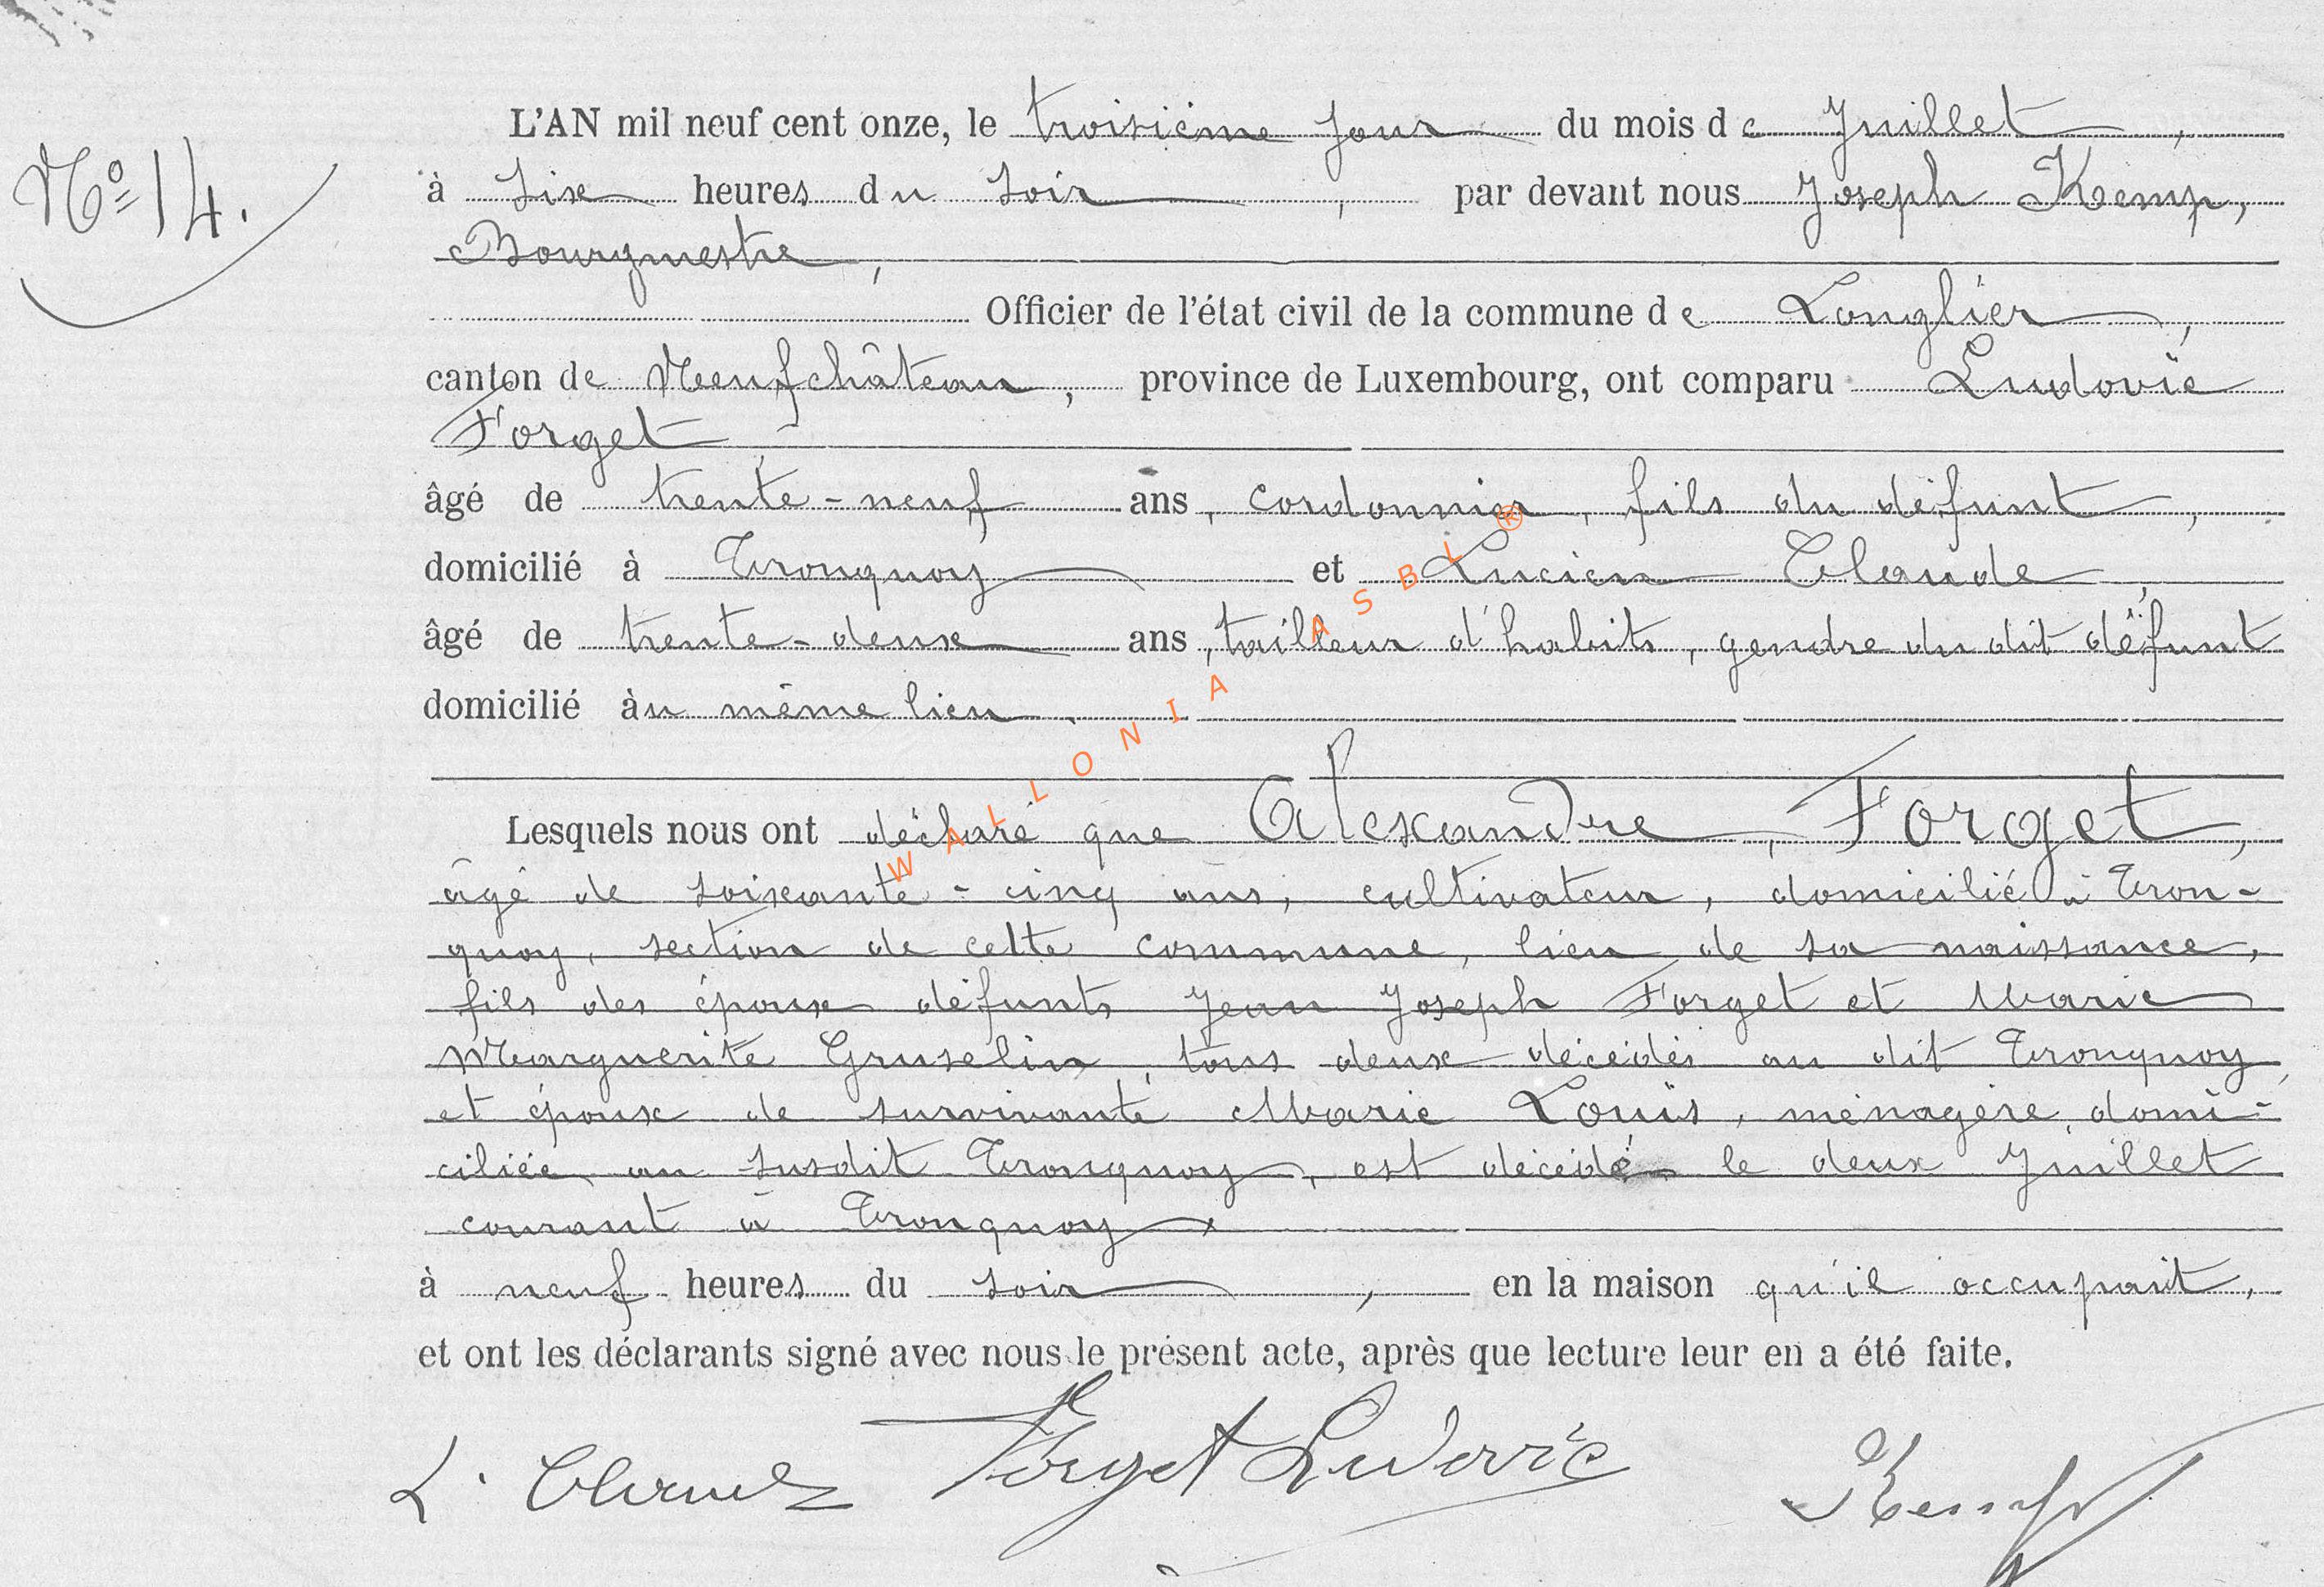 N° 14.
L'AN mil neuf cent onze, le troisième jour du mois de Juillet,
à six heures du soir, par devant nous Joseph Kemp,
Bourgmestre,
Officier de l'état civil de la commune de Longlier,
canton de Neufchâteau, province de Luxembourg, ont comparu Ludovic
Forget,
âgé de trente-neuf ans, cordonnier, fils du défunt,
domicilié à Tronquoy et Lucien Claude,
âgé de trente-deux ans, tailleur d'habits, gendre du dit défunt
domicilié au même lieu.
Lesquels nous ont déclaré que Alexandre, Forget,
âgé de soixante-cinq ans, cultivateur, domicilié à Tron-
quoy, section de cette commune, lieu de sa naissance,
fils des époux défunts Jean Joseph Forget et Marie
Marguerite Gruselin, tous deux décédés au dit Tronquoy,
et époux de survivante Marie Louis, ménagère, domi-
ciliée au susdit Tronquoy, est décédé le deux Juillet
courant à Tronquoy
à neuf heures du soir, en la maison qu'il occupait,
et ont les déclarants signé avec nous le présent acte, après que lecture leur en a été faite.
L. Claude Forget Ludovic Kemp
WALLONIA ASBL ®